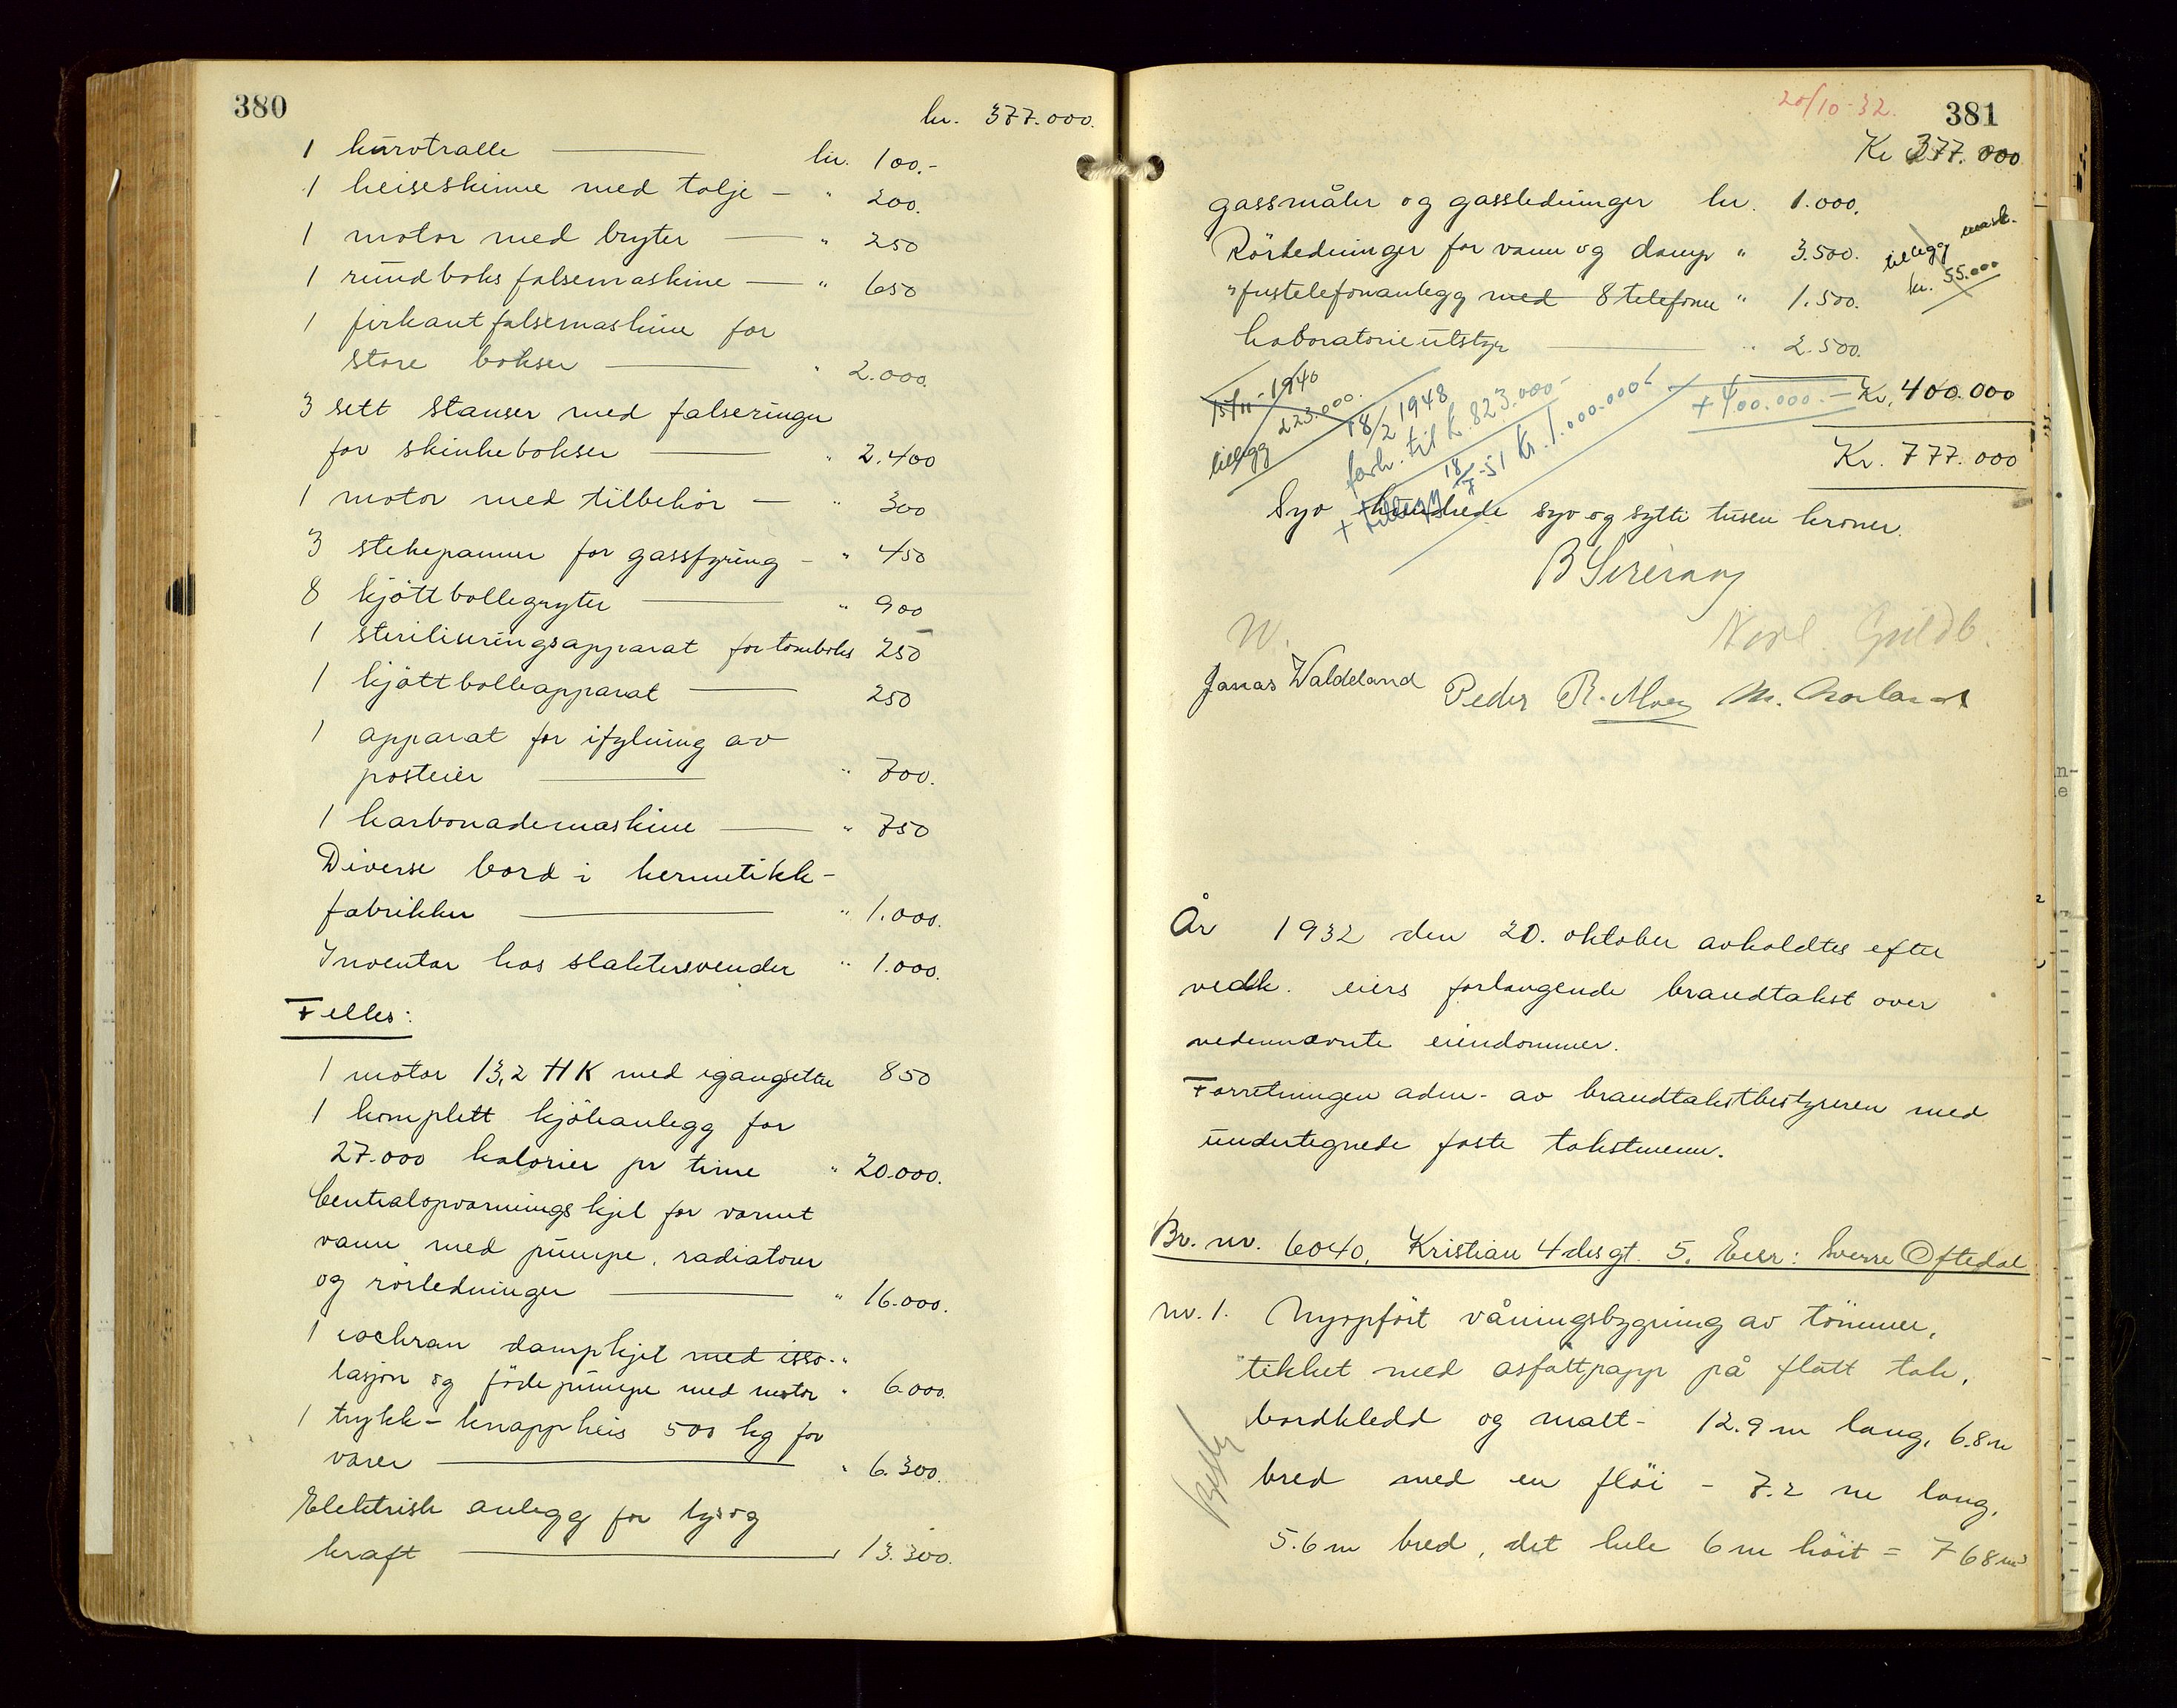 380
kr. 377.000.
1 kurvtralle kr. 100.-
1 heiseskinne med talje - " 200.
1 motor med bryter " 250
1 rundboks falsemaskine " 650
1 firkant falsemaskine for
store bokser " 2.000.
3 sett stanser med falseringer
for skinkebokser " 2.400
1 motor med tilbehör " 300
3 stekepanner for gassfyring - " 450
8 kjöttbollegryter " 900
1 steriliseringsapparat for tomboks 250
1 kjöttbolleapparat 250
1 apparat for ifylning av
posteier " 700.
1 karbonademaskine " 750
Diverse bord i hermetikk-
fabrikken " 1.000.
Inventar hos slaktersvender " 1.000.
Felles:
1 motor 13,2 HK med igangsetter 850
1 komplett kjöleanlegg for
27.000 kalorier pr time " 20.000.
Centralopvarmings kjel for varmt
vann med pumpe, radiatorer
og rörledninger " 16.000.
1 cochran dampkjel med iso-
lasjon og födepumpe med motor " 6.000.
1 trykk-knappheis 500 kg for
varer " 6.300.
Elektrisk anlegg for lys og
kraft 13.300.
20/10-32.
381
Kr 377.000
gassmåler og gassledninger kr. 1.000.
Rörledninger for vann og damp " 3.500.
tillegg mask.
kr. 55.000
Hustelefonanlegg med 8 telefoner " 1.500.
Laboratorieutstyr " 2.500.
+ 400.000.- Kr. 400.000
15/11-1940
tillegg 223.000.
18/2 1948
forh. til k. 823.000-
+ tillegg 18/7-51 kr. 1.000.000
Kr. 777.000
Syv hundrede syv og sytti tusen kroner.
Jonas Waldeland Peder R. Moen
År 1932 den 20. oktober avholdtes efter
vedk. eiers forlangende brandtakst over
nedennævnte eiendommer.
Forretningen adm. av brandtakstbestyreren med
undertegnede faste takstmenn.
Br. nr. 6040, Kristian 4des gt. 5. Eier: Sverre Oftedal
nr. 1. Nyopfört våningsbygning av tömmer,
tekket med asfaltpapp på flatt tak,
bordkledd og malt - 12.9 m lang, 6.8 m
bred med en flöi - 7.2 m lang,
5.6 m bred, det hele 6 m höit = 768 m³